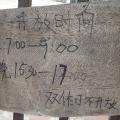 开放时间
7:00—9:00
晚15:30—17:00
双休日不开放